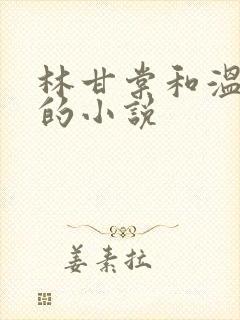 林甘棠和温
的小说
姜素拉